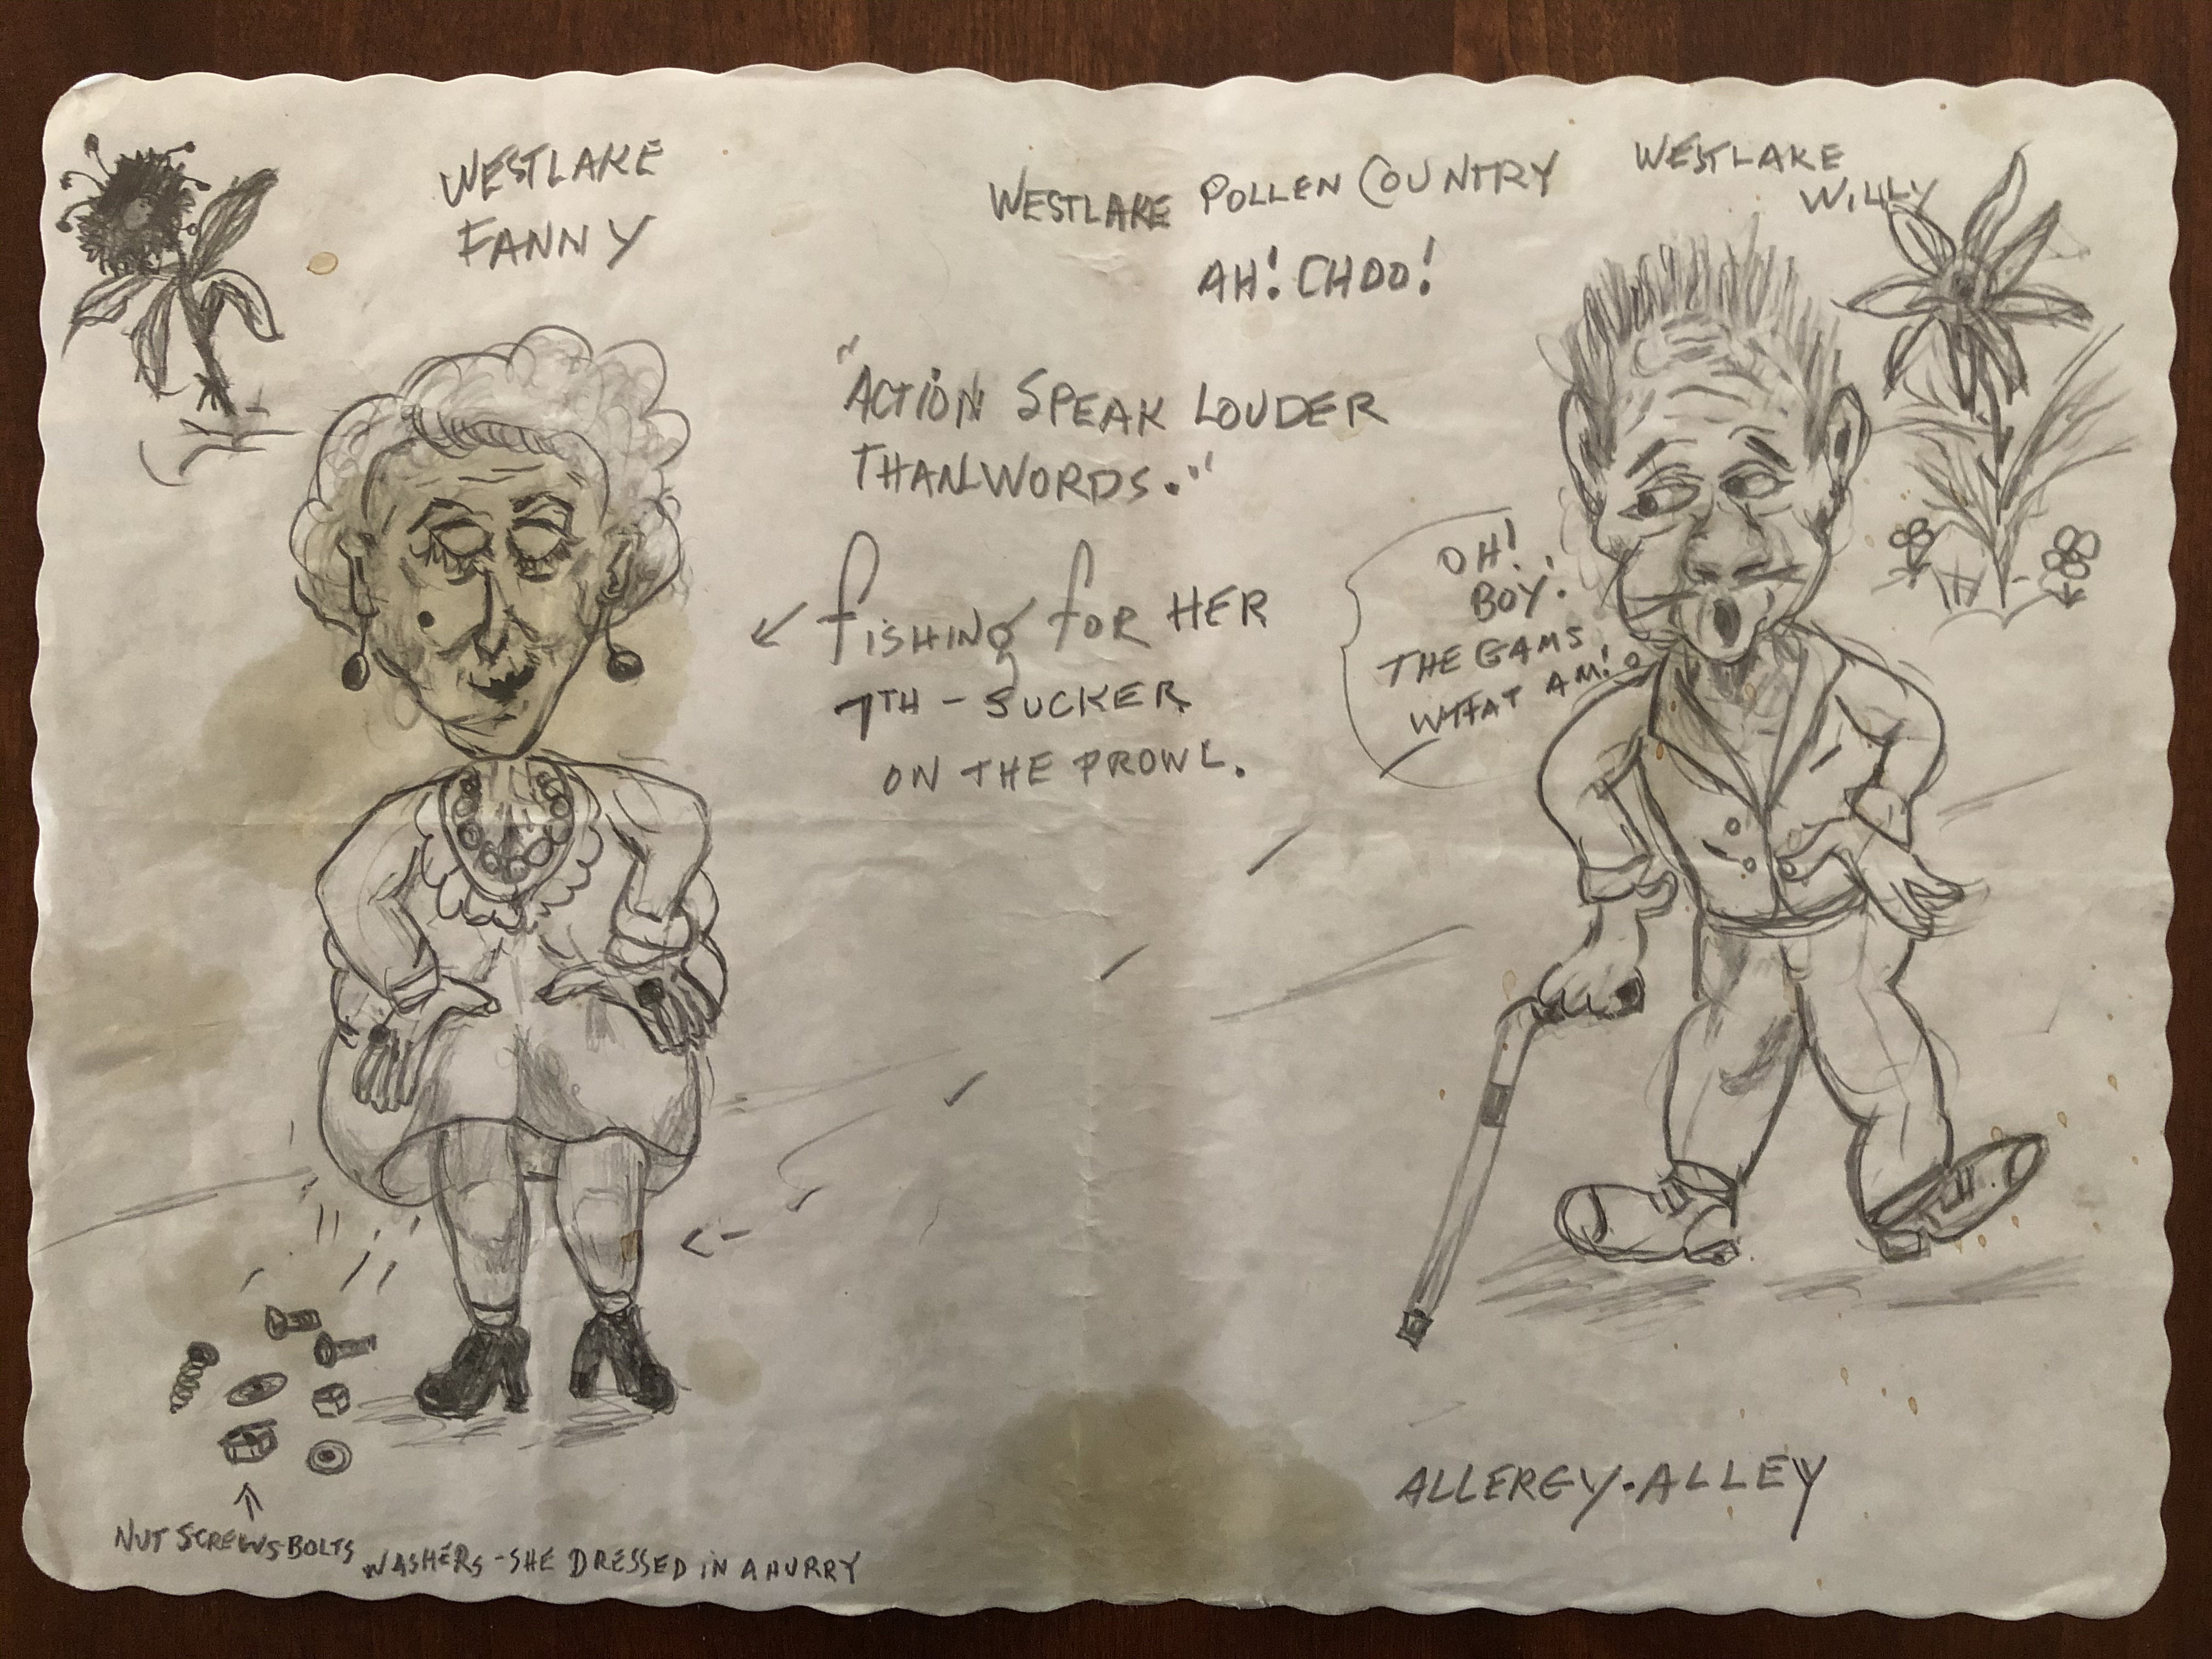 WESTLAKE
FANNY
WESTLAKE POLLEN COUNTRY
AH! CHOO!
WESTLAKE
WILLY
"ACTION SPEAK LOUDER
THAN WORDS."
FISHING FOR HER
7TH - SUCKER
ON THE PROWL.
OH!
BOY!
THE GAMS
WHAT AM!
NUT SCREWS-BOLTS WASHERS - SHE DRESSED IN A HURRY
ALLERGY-ALLEY